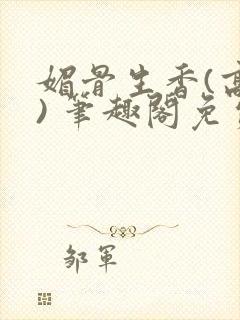 媚骨生香(高
) 笔趣阁免费
邹军